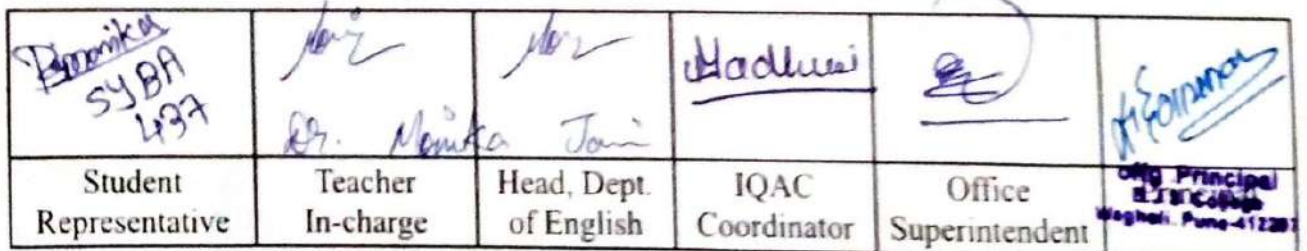 SYBA
437
Madhuri
Dr. Monika Jain
Student Representative
Teacher In-charge
Head, Dept. of English
IQAC Coordinator
Office Superintendent
Offg Principal
B.J.S College
Wagholi. Pune-412207